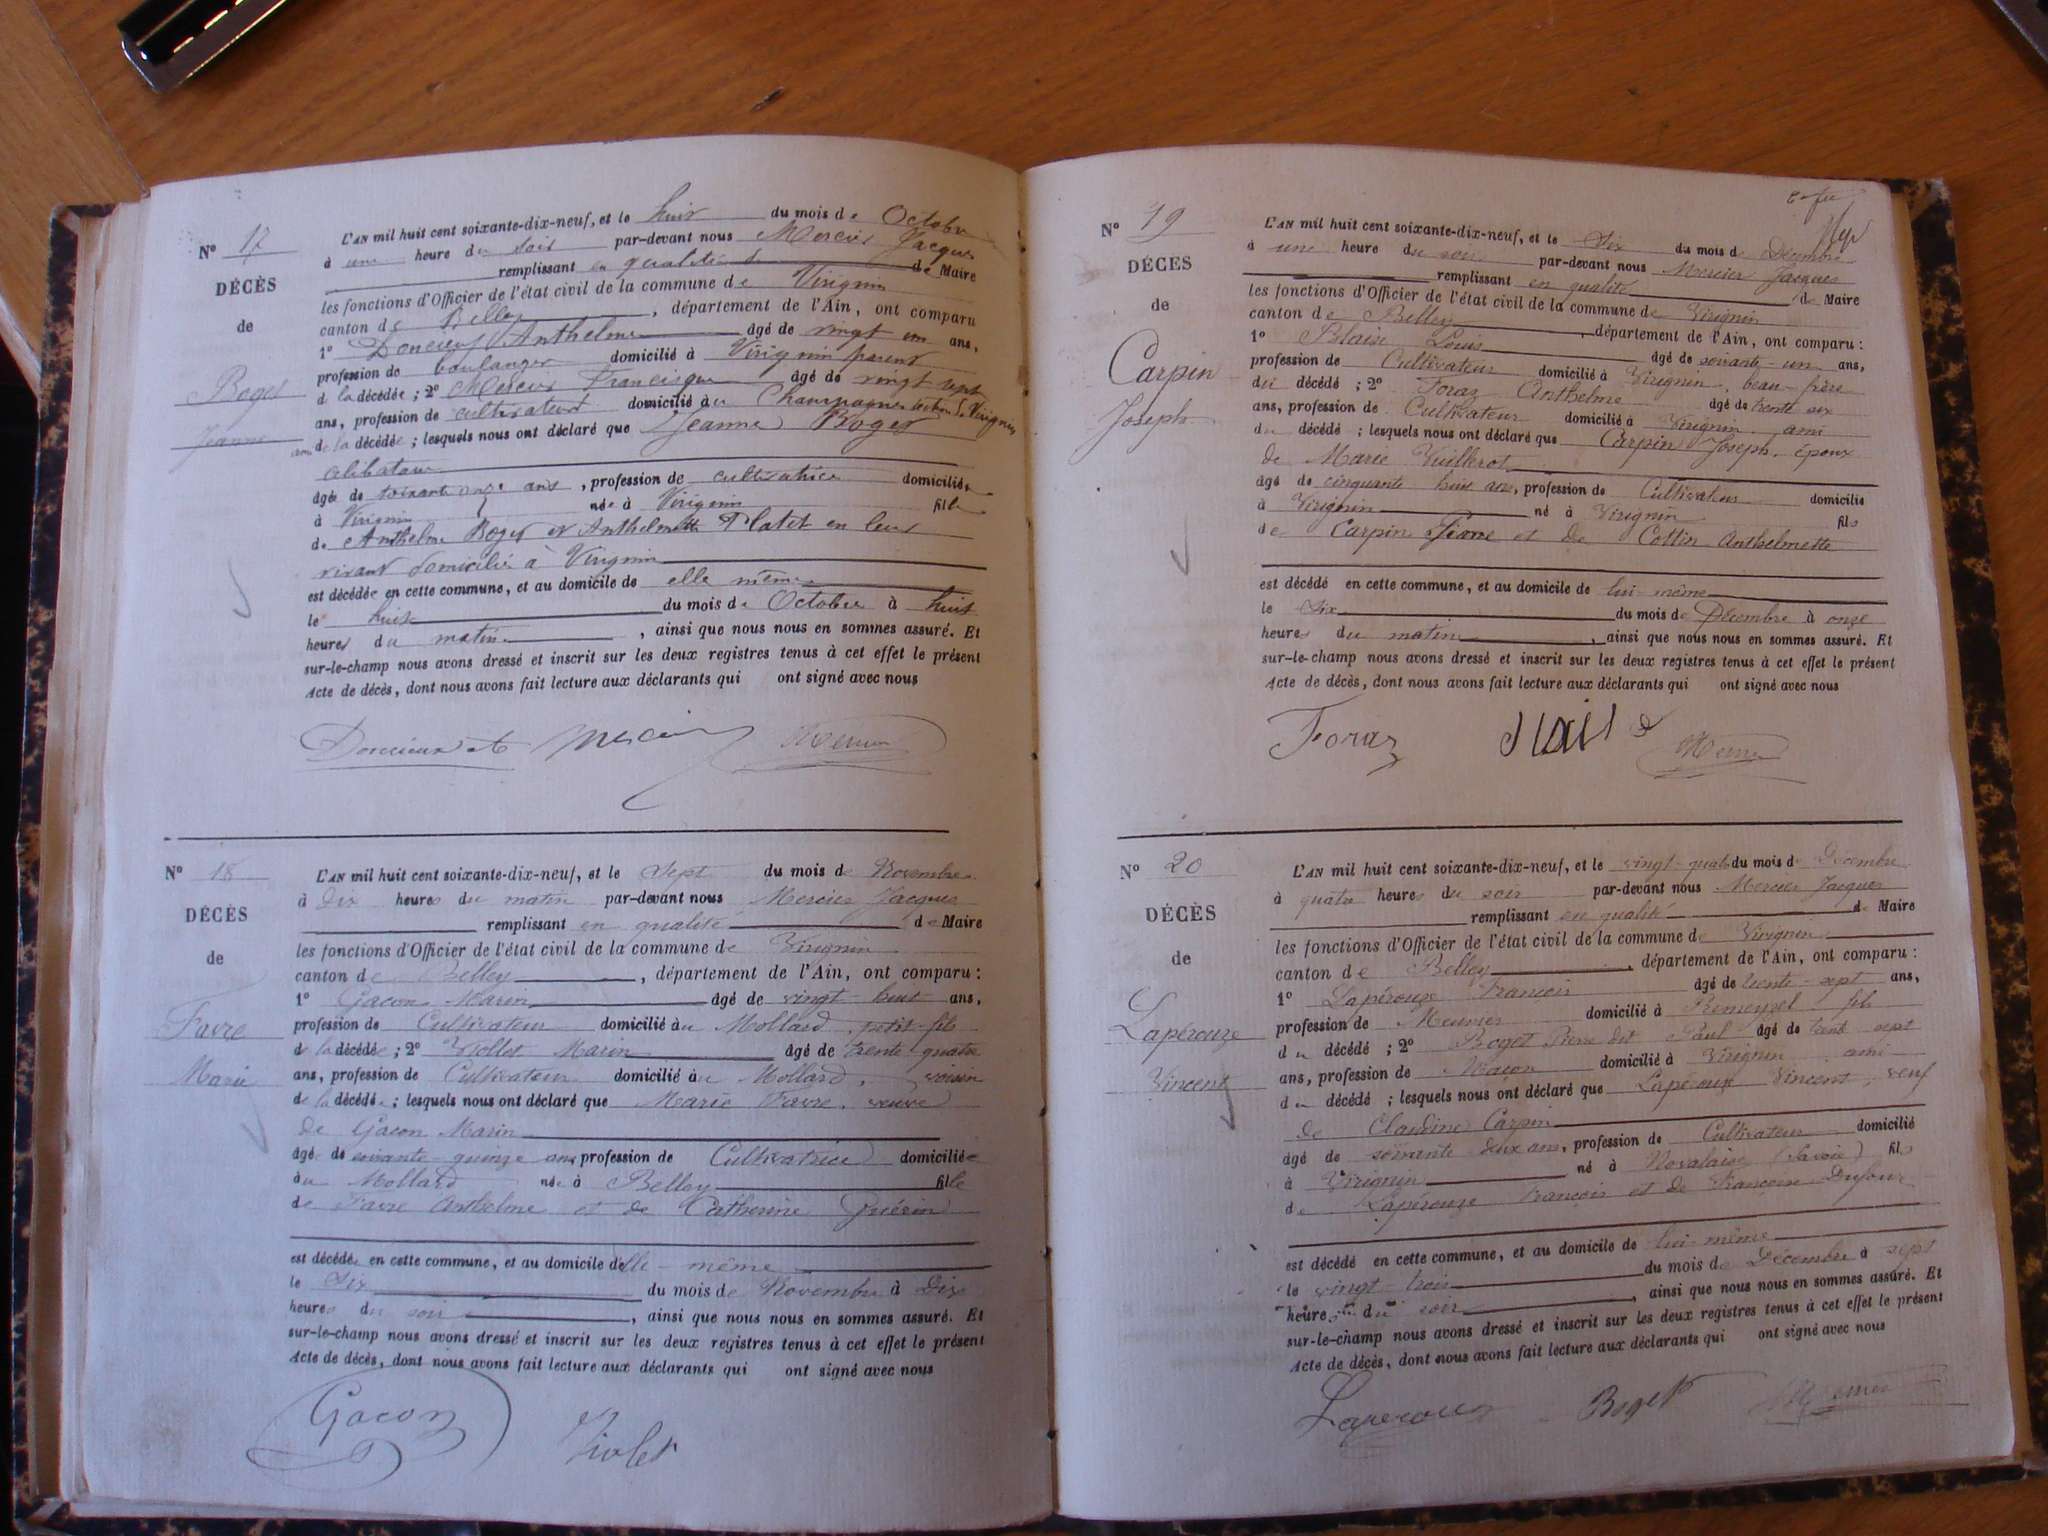 N° 17
DÉCÈS
de
Boget
Jeanne
L'AN mil huit cent soixante-dix-neuf, et le huit du mois de Octobre
à une heure du soir par-devant nous Mercier Jacques
remplissant en qualité de Maire
les fonctions d'Officier de l'état civil de la commune de Virignin
canton de Belley, département de l'Ain, ont comparu
1° Doncieux Anthelme âgé de vingt un ans,
profession de boulanger domicilié à Virignin parent
de la décédée ; 2° Mercier Francisque âgé de vingt sept
ans, profession de cultivateur domicilié au Champagne section de Virignin
ami de la décédée ; lesquels nous ont déclaré que Jeanne Boget
célibataire
âgée de soixante onze ans, profession de cultivatrice domiciliée
à Virignin née à Virignin fille
de Anthelme Boget et Anthelmette Platet en leur
vivant domicilié à Virignin
est décédée en cette commune, et au domicile de elle même
le huit du mois de Octobre à huit
heures du matin, ainsi que nous nous en sommes assuré. Et
sur-le-champ nous avons dressé et inscrit sur les deux registres tenus à cet effet le présent
Acte de décès, dont nous avons fait lecture aux déclarants qui ont signé avec nous
Doncieux Mercier Mercier
N° 18
DÉCÈS
de
Favre
Marie
L'AN mil huit cent soixante-dix-neuf, et le Sept du mois de Novembre
à Dix heures du matin par-devant nous Mercier Jacques
remplissant en qualité de Maire
les fonctions d'Officier de l'état civil de la commune de Virignin
canton de Belley, département de l'Ain, ont comparu :
1° Gacon Marin âgé de vingt-huit ans,
profession de Cultivateur domicilié au Mollard, petit-fils
de la décédée ; 2° Viollet Marin âgé de trente-quatre
ans, profession de Cultivateur domicilié au Mollard, voisin
de la décédée ; lesquels nous ont déclaré que Marie Favre, veuve
de Gacon Marin
âgée de soixante-quinze ans, profession de Cultivatrice domiciliée
au Mollard née à Belley fille
de Favre Anthelme et de Catherine Guérin
est décédée en cette commune, et au domicile d'elle-même
le Six du mois de Novembre à Dix
heures du soir, ainsi que nous nous en sommes assuré. Et
sur-le-champ nous avons dressé et inscrit sur les deux registres tenus à cet effet le présent
Acte de décès, dont nous avons fait lecture aux déclarants qui ont signé avec nous
Gacon Violet
N° 19
DÉCES
de
Carpin
Joseph
L'AN mil huit cent soixante-dix-neuf, et le Six du mois de Décembre
à une heure du soir par-devant nous Mercier Jacques
remplissant en qualité de Maire
les fonctions d'Officier de l'état civil de la commune de Virignin
canton de Belley, département de l'Ain, ont comparu :
1° Blaise Louis âgé de soixante-un ans,
profession de Cultivateur domicilié à Virignin, beau-frère
du décédé ; 2° Foraz Anthelme âgé de trente six
ans, profession de Cultivateur domicilié à Virignin, ami
du décédé ; lesquels nous ont déclaré que Carpin Joseph, époux
de Marie Vuillerot
âgé de cinquante huit ans, profession de Cultivateur domicilié
à Virignin né à Virignin fils
de Carpin Pierre et de Cottin Anthelmette
est décédé en cette commune, et au domicile de lui-même
le Six du mois de Décembre à onze
heures du matin, ainsi que nous nous en sommes assuré. Et
sur-le-champ nous avons dressé et inscrit sur les deux registres tenus à cet effet le présent
Acte de décès, dont nous avons fait lecture aux déclarants qui ont signé avec nous
Foraz Mercier
N° 20
DÉCÈS
de
Lapérouze
Vincent
L'AN mil huit cent soixante-dix-neuf, et le vingt-quatre du mois de Décembre
à quatre heures du soir par-devant nous Mercier Jacques
remplissant en qualité de Maire
les fonctions d'Officier de l'état civil de la commune de Virignin
canton de Belley, département de l'Ain, ont comparu :
1° Lapérouze François âgé de trente-sept ans,
profession de Meunier domicilié à fils
du décédé ; 2° Boget Pierre dit Paul âgé de trente sept
ans, profession de Maçon domicilié à Virignin, ami
du décédé ; lesquels nous ont déclaré que Lapérouze Vincent, veuf
de Claudine Carpin
âgé de soixante-deux ans, profession de Cultivateur domicilié
à Virignin né à Novalaise (Savoie) fils
de Lapérouze François et de Françoise Dufour
est décédé en cette commune, et au domicile de lui-même
le vingt-trois du mois de Décembre à sept
heures du soir, ainsi que nous nous en sommes assuré. Et
sur-le-champ nous avons dressé et inscrit sur les deux registres tenus à cet effet le présent
Acte de décès, dont nous avons fait lecture aux déclarants qui ont signé avec nous
Laperouze Boget Mercier